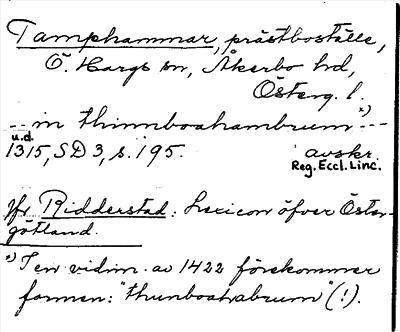 Tamphammar, prästboställe,
Ö. Hargs sn, Åkerbo hd,
Österg. l.
... in thinnboahambrum x) ...
u.d.
1315, SD 3, s. 195. avskr.
Reg. Eccl. Linc.
Jfr Ridderstad: Lexicon öfver Öster-
götland.
x) I en vidim. av 1422 förekommer
formen: "thunboahabrum" (!).